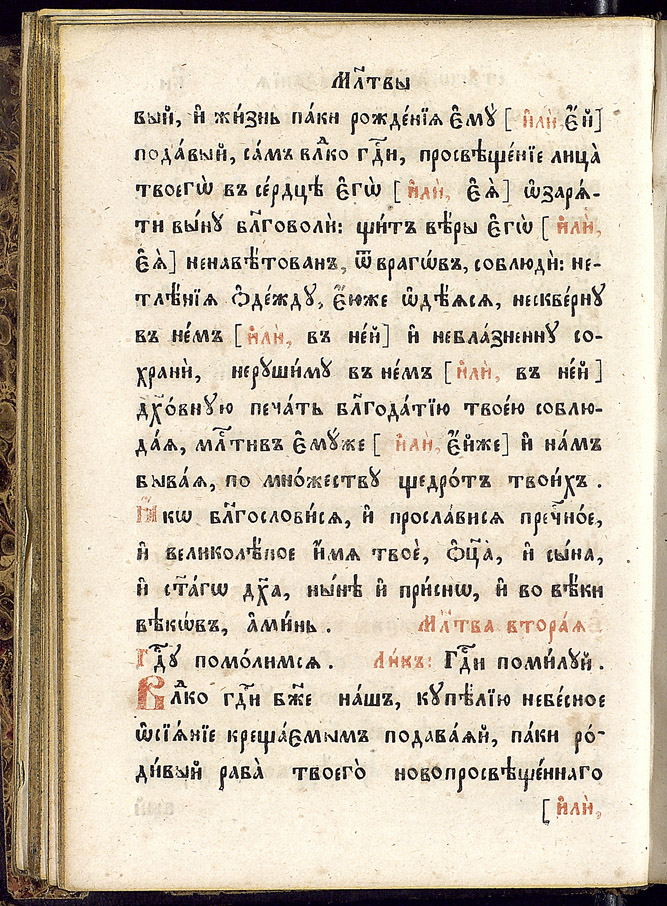 Мл҃твы
вый, и҆ жи́знь па́ки рожде́нїѧ є҆мꙋ̀ [и҆лѝ, є҆́й]
пода́вый, са́мъ влⷣко гдⷭ҇и, просвѣще́нїе лица̀
твоегѡ̀ въ се́рдцѣ є҆гѡ̀ [и҆лѝ, є҆ѧ̀] ѡ҆зарѧ́-
ти вы́нꙋ бл҃говолѝ: щи́тъ вѣ́ры є҆гѡ̀ [и҆лѝ,
є҆ѧ̀] ненавѣ́тованъ, ѿ врагѡ́въ, соблюдѝ: не-
тлѣ́нїѧ ѻ҆де́ждꙋ, є҆́юже ѡ҆дѣ́ѧсѧ, нескве́рнꙋ
въ не́мъ [и҆лѝ, въ не́й] и҆ небла́зненнꙋ со-
хранѝ, нерꙋши́мꙋ въ не́мъ [и҆лѝ, въ не́й]
дх҃о́внꙋю печа́ть бл҃года́тїю твое́ю соблю-
да́ѧ, млⷭ҇тивъ є҆мꙋ́же [и҆лѝ, є҆́йже] и҆ на́мъ
быва́ѧ, по мно́жествꙋ щедро́тъ твои́хъ.
Ꙗ҆́кѡ бл҃гослови́сѧ, и҆ просла́висѧ пречⷭ҇тно́е,
и҆ великолѣ́пое и҆́мѧ твоѐ, ѻ҆ц҃а̀, и҆ сы́на,
и҆ ст҃а́гѡ дх҃а, ны́нѣ и҆ при́снѡ, и҆ во вѣ́ки
вѣкѡ́въ, а҆ми́нь. Мл҃тва втора́ѧ
Гдⷭ҇ꙋ помо́лимсѧ. Ли́къ: Гдⷭ҇и поми́лꙋй.
Влⷣко гдⷭ҇и бж҃е на́шъ, кꙋпѣ́лїю небе́сное
ѡ҆сїѧ́нїе креща́ємымъ подава́ѧй, па́ки ро-
ди́вый раба̀ твоего̀ новопросвѣще́ннаго
[и҆лѝ,